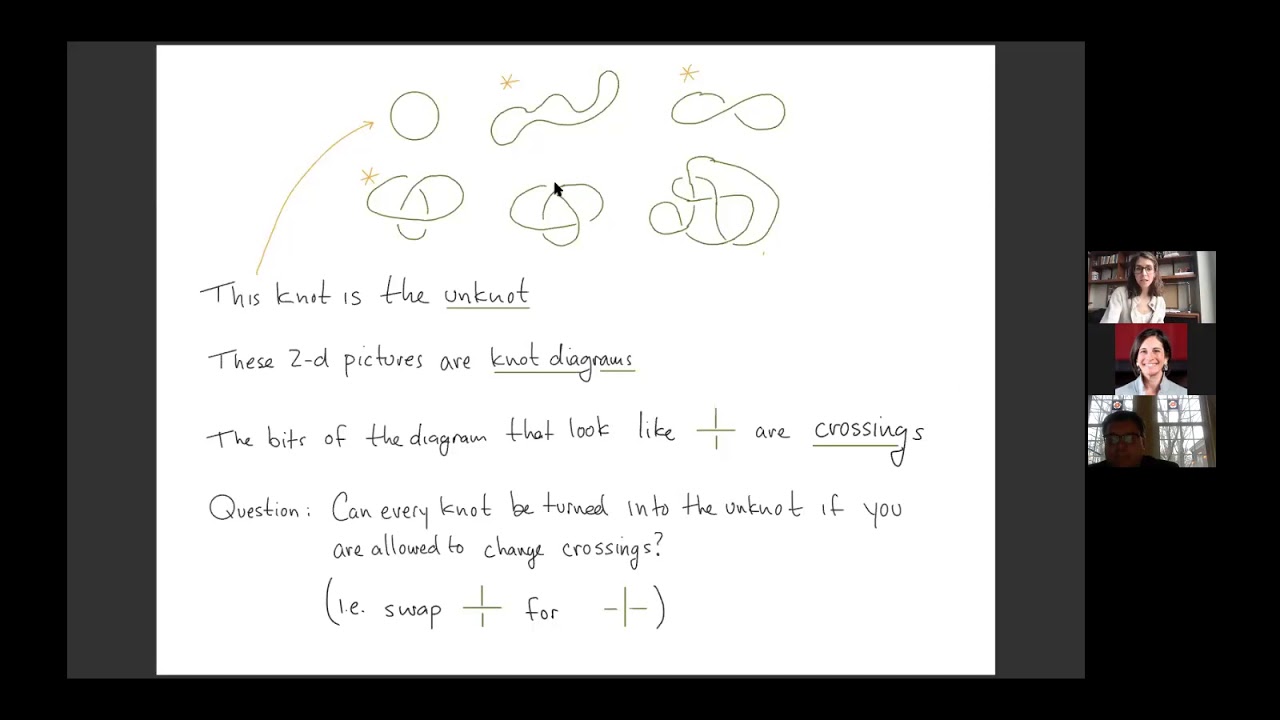 This knot is the unknot
These 2-d pictures are knot diagrams
The bits of the diagram that look like are crossings
Question: Can every knot be turned into the unknot if you
are allowed to change crossings?
(i.e. swap for )